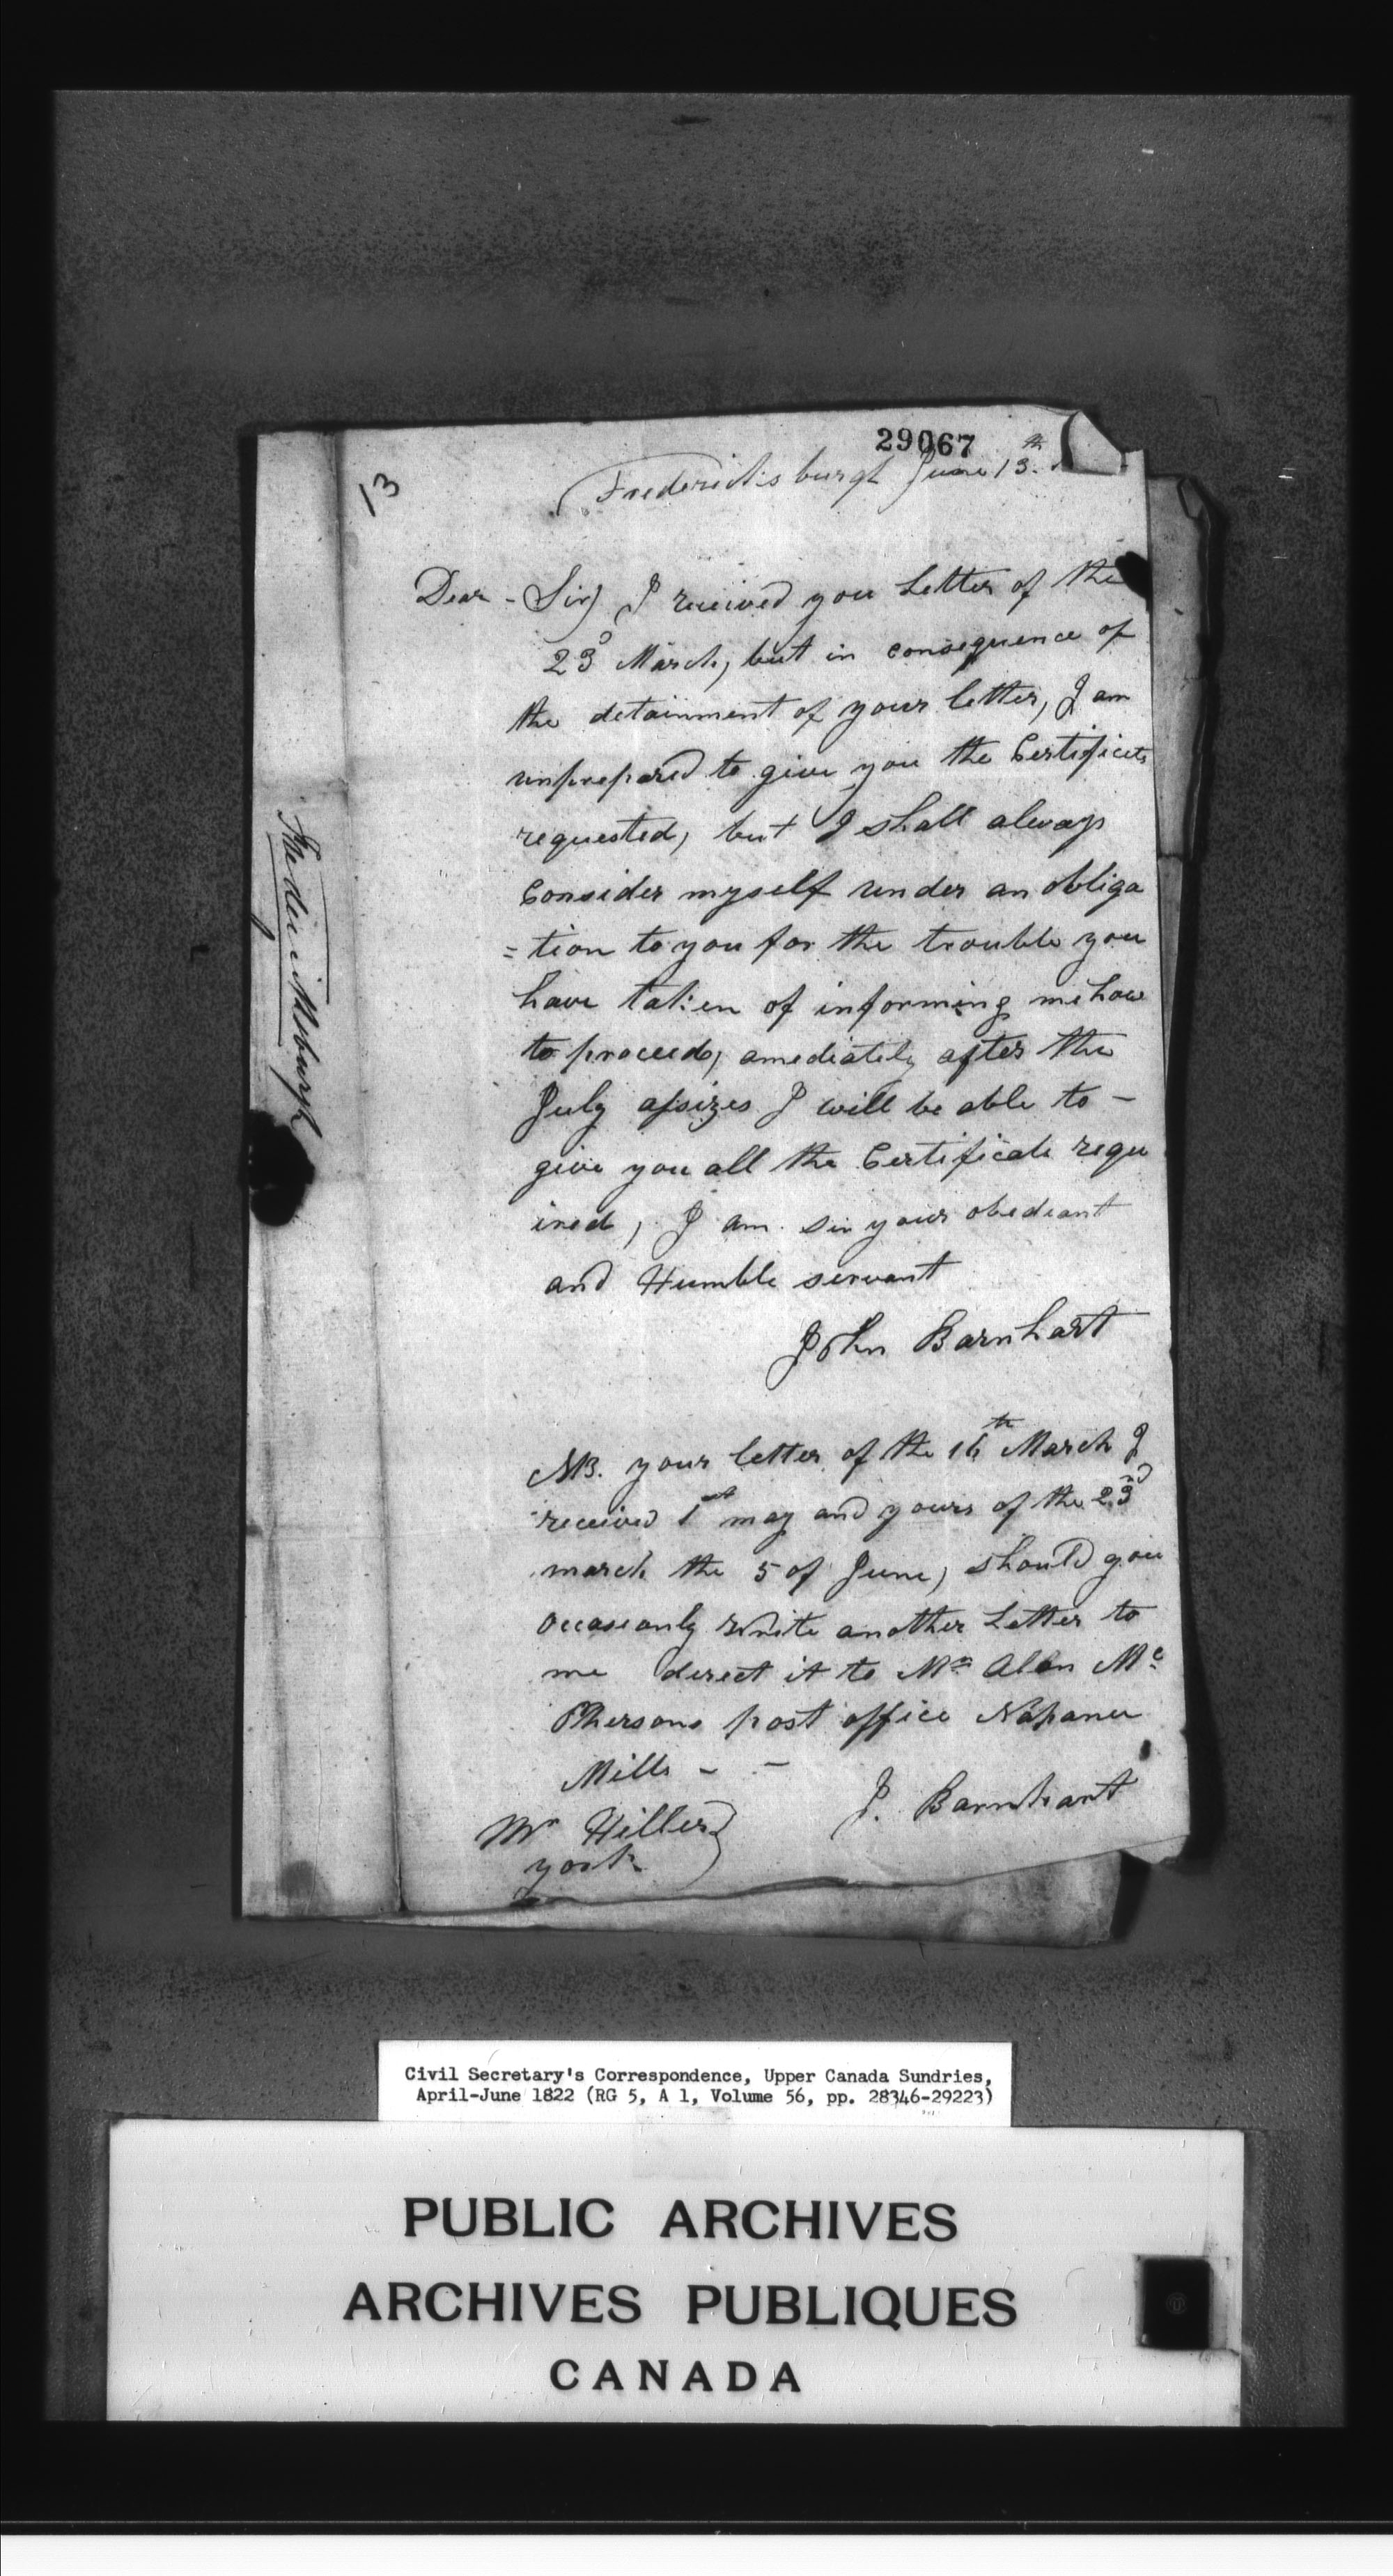 29067
13
Fredericksburgh June 13th
Dear - Sir) I received you Letter of the
23d March, but in consequence of
the detainment of your letter, I am
unprepared to give you the Certificate
requested, but I shall always
Consider myself under an obliga
=tion to you for the trouble you
have taken of informing me how
to proceed, amediately after the
July assizes I will be able to -
give you all the Certificate requ
ired, I am sir your obedeant
and Humble servant
John Barnhart
NB. your letter of the 16th March I
received 1st may and yours of the 23d
march the 5 of June, should you
occaseonly write another Letter to
me direct it to Mr Alen Mc
Phersons post office Napanee
Mills - -
J. Barnhart
Mr Hiller)
york
Fredericksburgh
Civil Secretary's Correspondence, Upper Canada Sundries,
April-June 1822 (RG 5, A 1, Volume 56, pp. 28346-29223)
PUBLIC ARCHIVES
ARCHIVES PUBLIQUES
CANADA